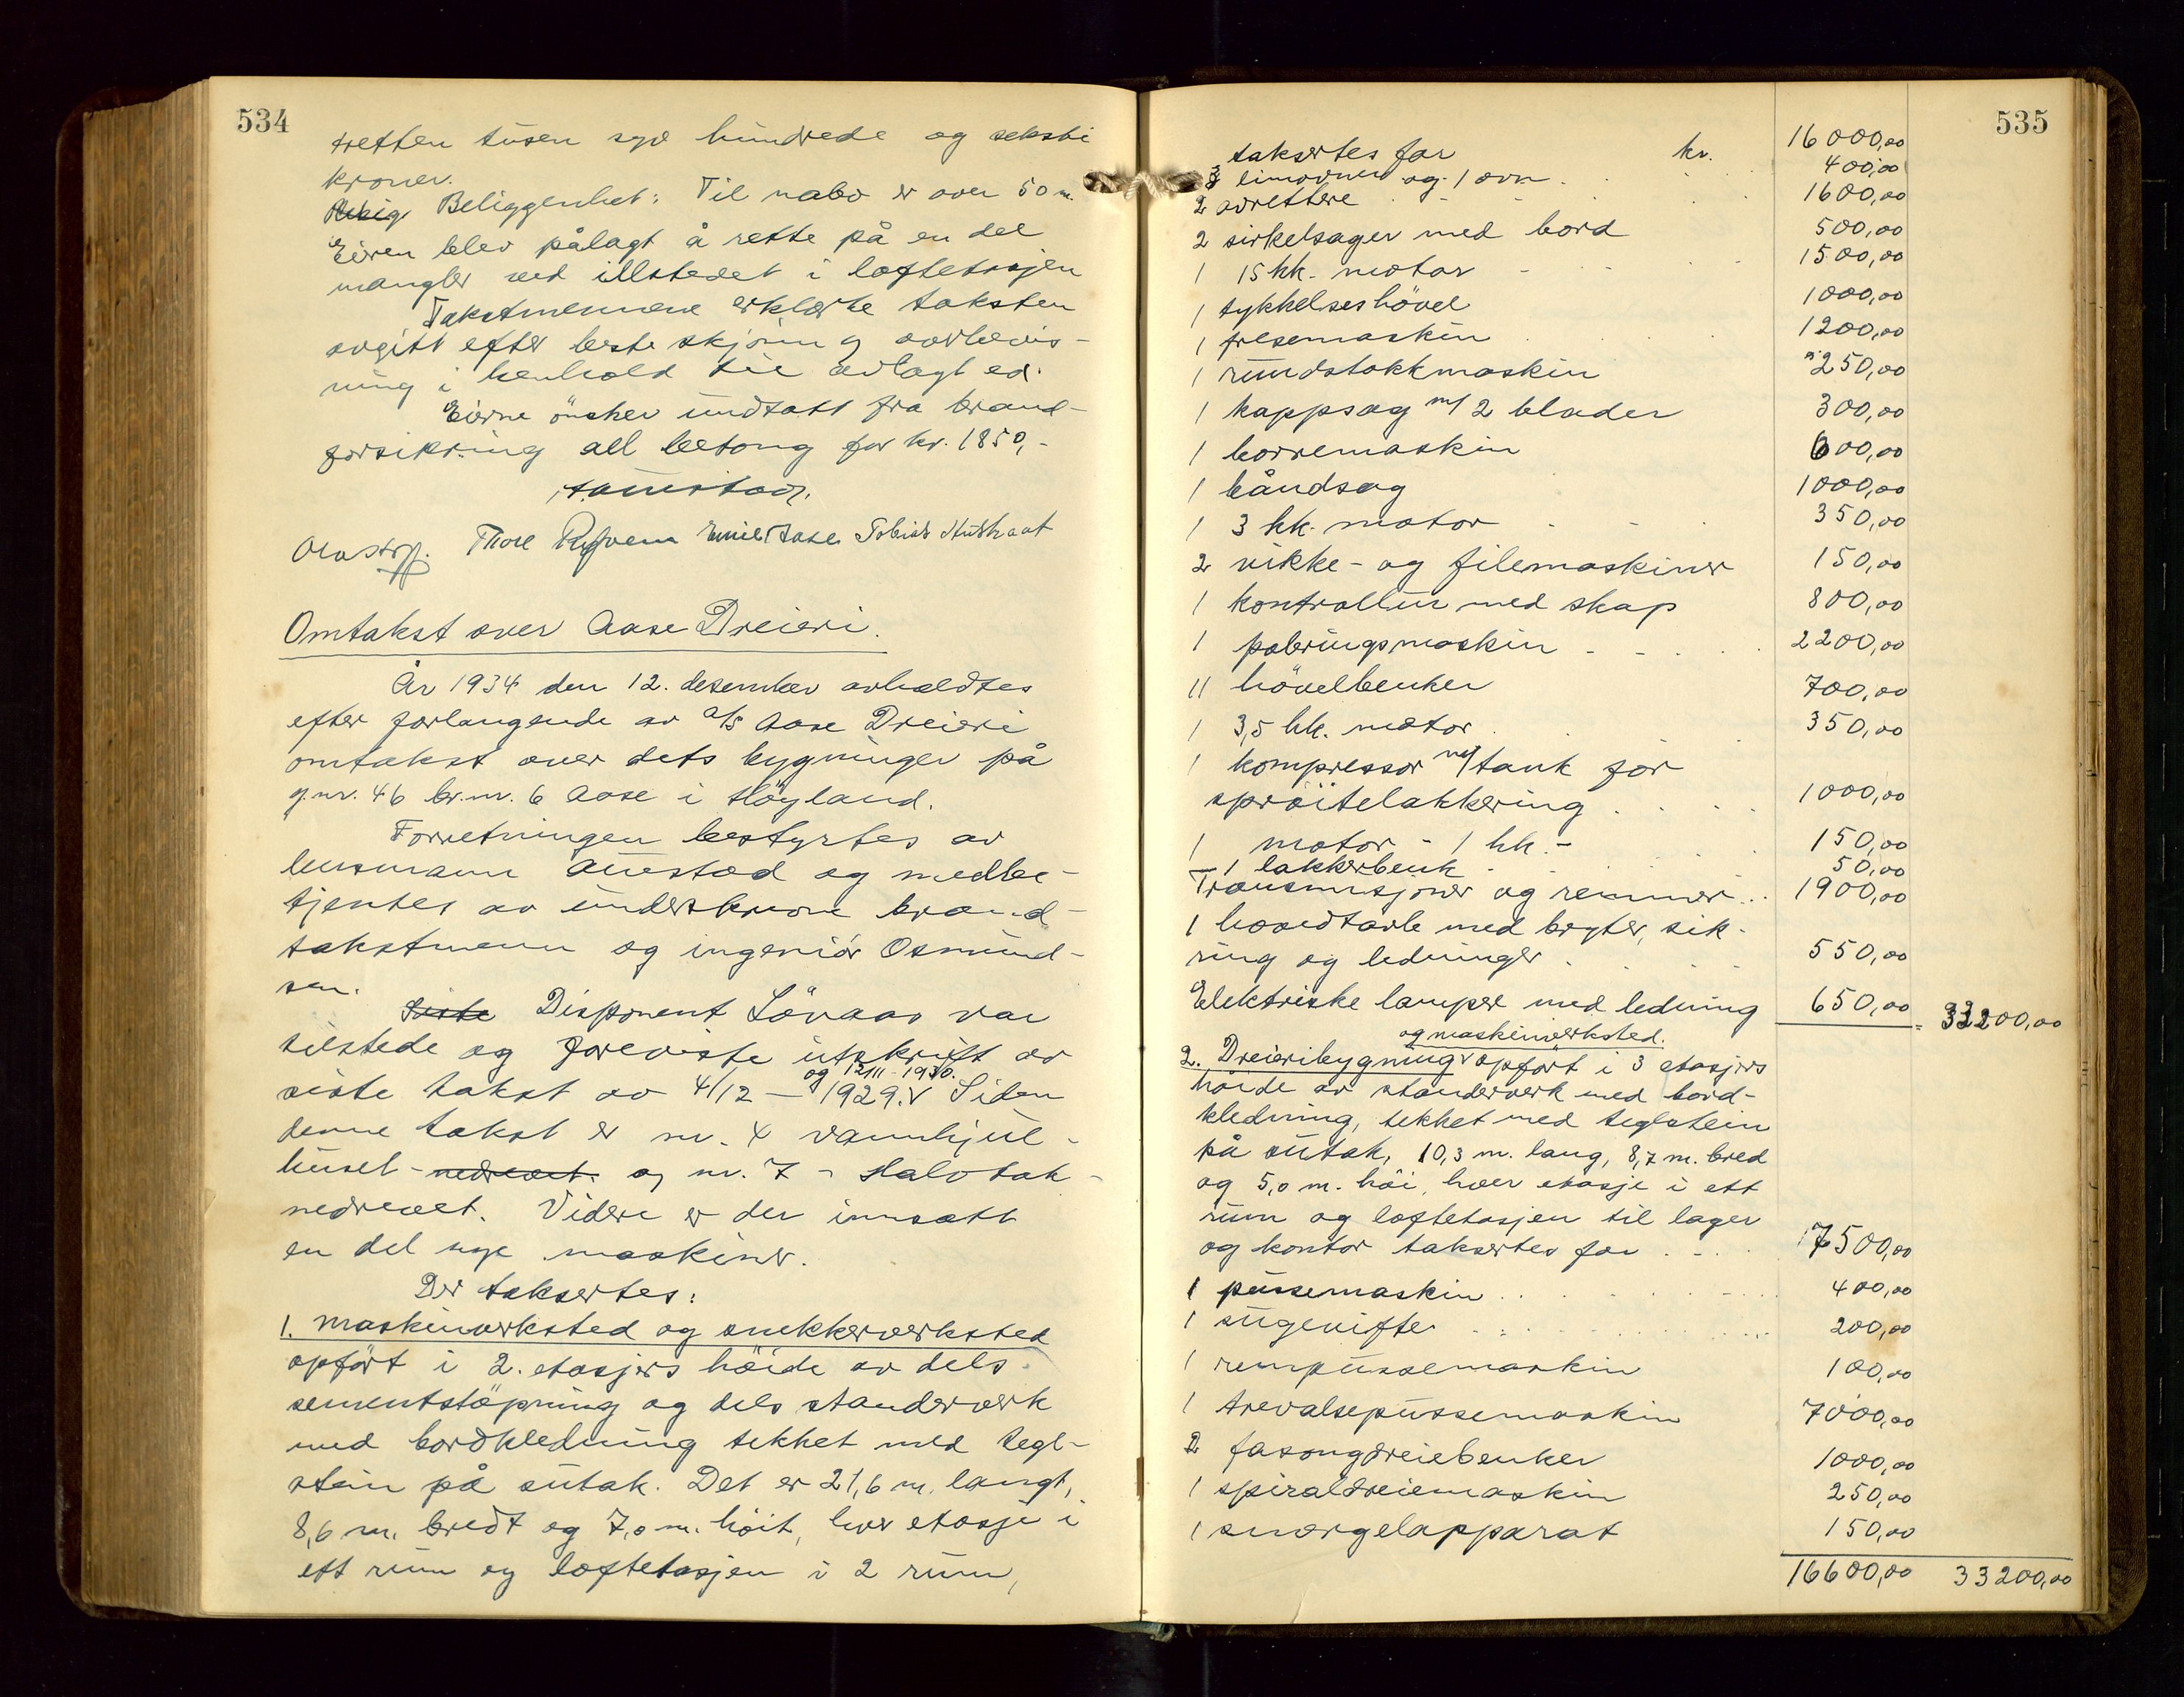 534
tretten tusen syv hundrede og seksti
kroner.
Beliggenhet: Til nabo er over 50 m.
Eieren blev pålagt å rette på en del
mangler ved illstedet i loftetasjen
Takstmennene erklærte taksten
avgitt efter beste skjønn og overbevis-
ning i henhold til avlagt ed.
Eierne ønsker undtatt fra brand-
forsikring all betong for kr. 1850,-
Auestad.
Thore Emil Aase Tobias
Omtakst over Aase Dreieri.
År 1934 den 12. desember avholdtes
efter forlangende av a/s Aase Dreieri
omtakst over dets bygninger på
g.nr. 46 br.nr. 6 Aase i Høyland.
Forretningen bestyrtes av
lensmann Auestad og medbe-
tjentes av underskrevne brand-
takstmenn og ingeniør Osmund-
sen.
Siste Disponent Lövaas var
tilstede og foreviste utskrift av
og 12/11-1930.
siste takst av 4/12 - 1929. Siden
denne takst er nr. 4 vannhjul-
huset - nedrevet. og nr. 7 - Halvtak -
nedrevet. Videre er der innsatt
en del nye maskiner.
Der taksertes:
1. Maskinverksted og snekkerverksted
opført i 2. etasjers høide av dels
sementstøpning og dels standerverk
med bordkledning tekket med tegl-
stein på sutak. Det er 21,6 m. langt,
8,6 m. bredt og 7,0 m. høit, hver etasje i
ett rum og loftetasjen i 2 rum,
535
taksertes for kr. 16000,00
3 limovner og 1 ovn 400,00
2 avrettere 1600,00
2 sirkelsager med bord 500,00
1 15 hk. motor 1500,00
1 tykkelseshövel 1000,00
1 fresemaskin 1200,00
1 rundstokkmaskin 250,00
1 kappsag m/ 2 blader 300,00
1 borremaskin 600,00
1 båndsag 1000,00
1 3 hk. motor 350,00
2 vikke- og filemaskiner 150,00
1 kontrollur med skap 800,00
1 poleringsmaskin 2200,00
11 hövelbenker 700,00
1 3,5 hk. motor 350,00
1 kompressor m/tank for
sprøitelakkering 1000,00
1 motor - 1 hk. - 150,00
1 lakkerbenk 50,00
Transmisjoner og remmer 1900,00
1 hovedtavle med bryter, sik-
ring og ledninger 550,00
Elektriske lamper med ledning 650,00 = 33200,00
og maskinverksted.
2. Dreieribygning opført i 3 etasjers
høide av standerverk med bord-
kledning, tekket med teglstein
på sutak, 10,3 m. lang, 8,7 m. bred
og 5,0 m. høi, hver etasje i ett
rum og loftetasjen til lager
og kontor taksertes for 7500,00
1 pussemaskin 400,00
1 sugevifte 200,00
1 rempussemaskin 100,00
1 trevalsepussemaskin 7000,00
2 fasongdreiebenker 1000,00
1 spiraldreiemaskin 250,00
1 smergelapparat 150,00
16600,00 33200,00